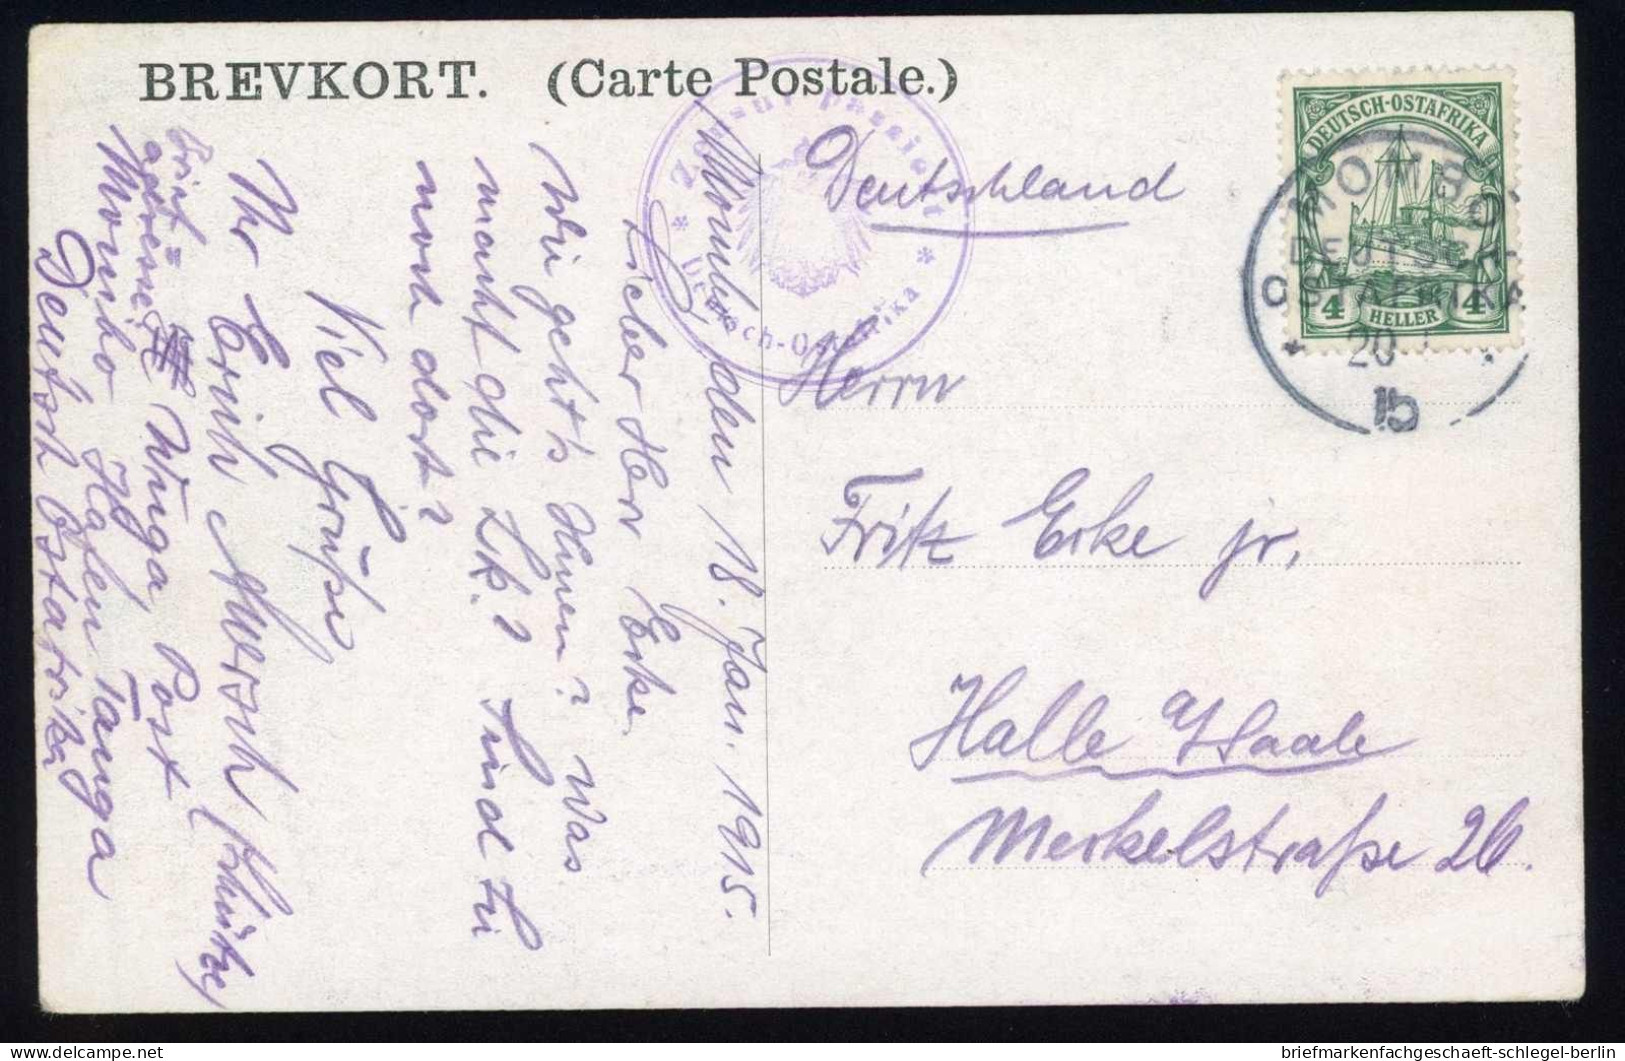 BREVKORT. (Carte Postale.)
Zensur passiert
* Deutsch-Ostafrika *
DEUTSCH-OSTAFRIKA
4 HELLER 4
MOMBO
DEUTSCH-
OSTAFRIKA
20
15
Deutschland
Herrn
Fritz Erke jr,
Halle a/Saale
Merkelstraße 26.
Mombo, den 18. Jan. 1915.
Lieber Herr Erke.
Wie geht's Ihnen? Was
macht die Lk.? Sind Sie
noch dort?
Viel Grüße
Ihr Erich
Wuga Post
Mombo Hafen Tanga
Deutsch Ostafrika
briefmarkenfachgeschaeft-schlegel-berlin
delcampe.net